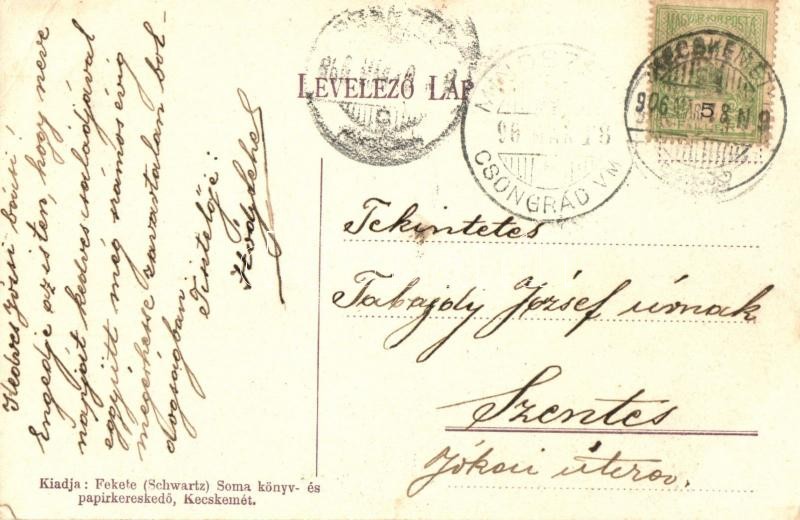 LEVELEZŐ LAP
MAGYAR KIR. POSTA
5
KECSKEMÉT
906 MÁR 18 N 9
CSONGRÁD VM
96 MÁR 18
Kedves Józsi bácsi
Engedje az isten, hogy neve
napját kedves családjával
együtt még számos évig
megérhesse zavartalan bol-
dogságban
Tisztelője:
Tekintetes
Tabajdy József úrnak
Szentes
Jókai útcza.
Kiadja: Fekete (Schwartz) Soma könyv- és
papirkereskedő, Kecskemét.